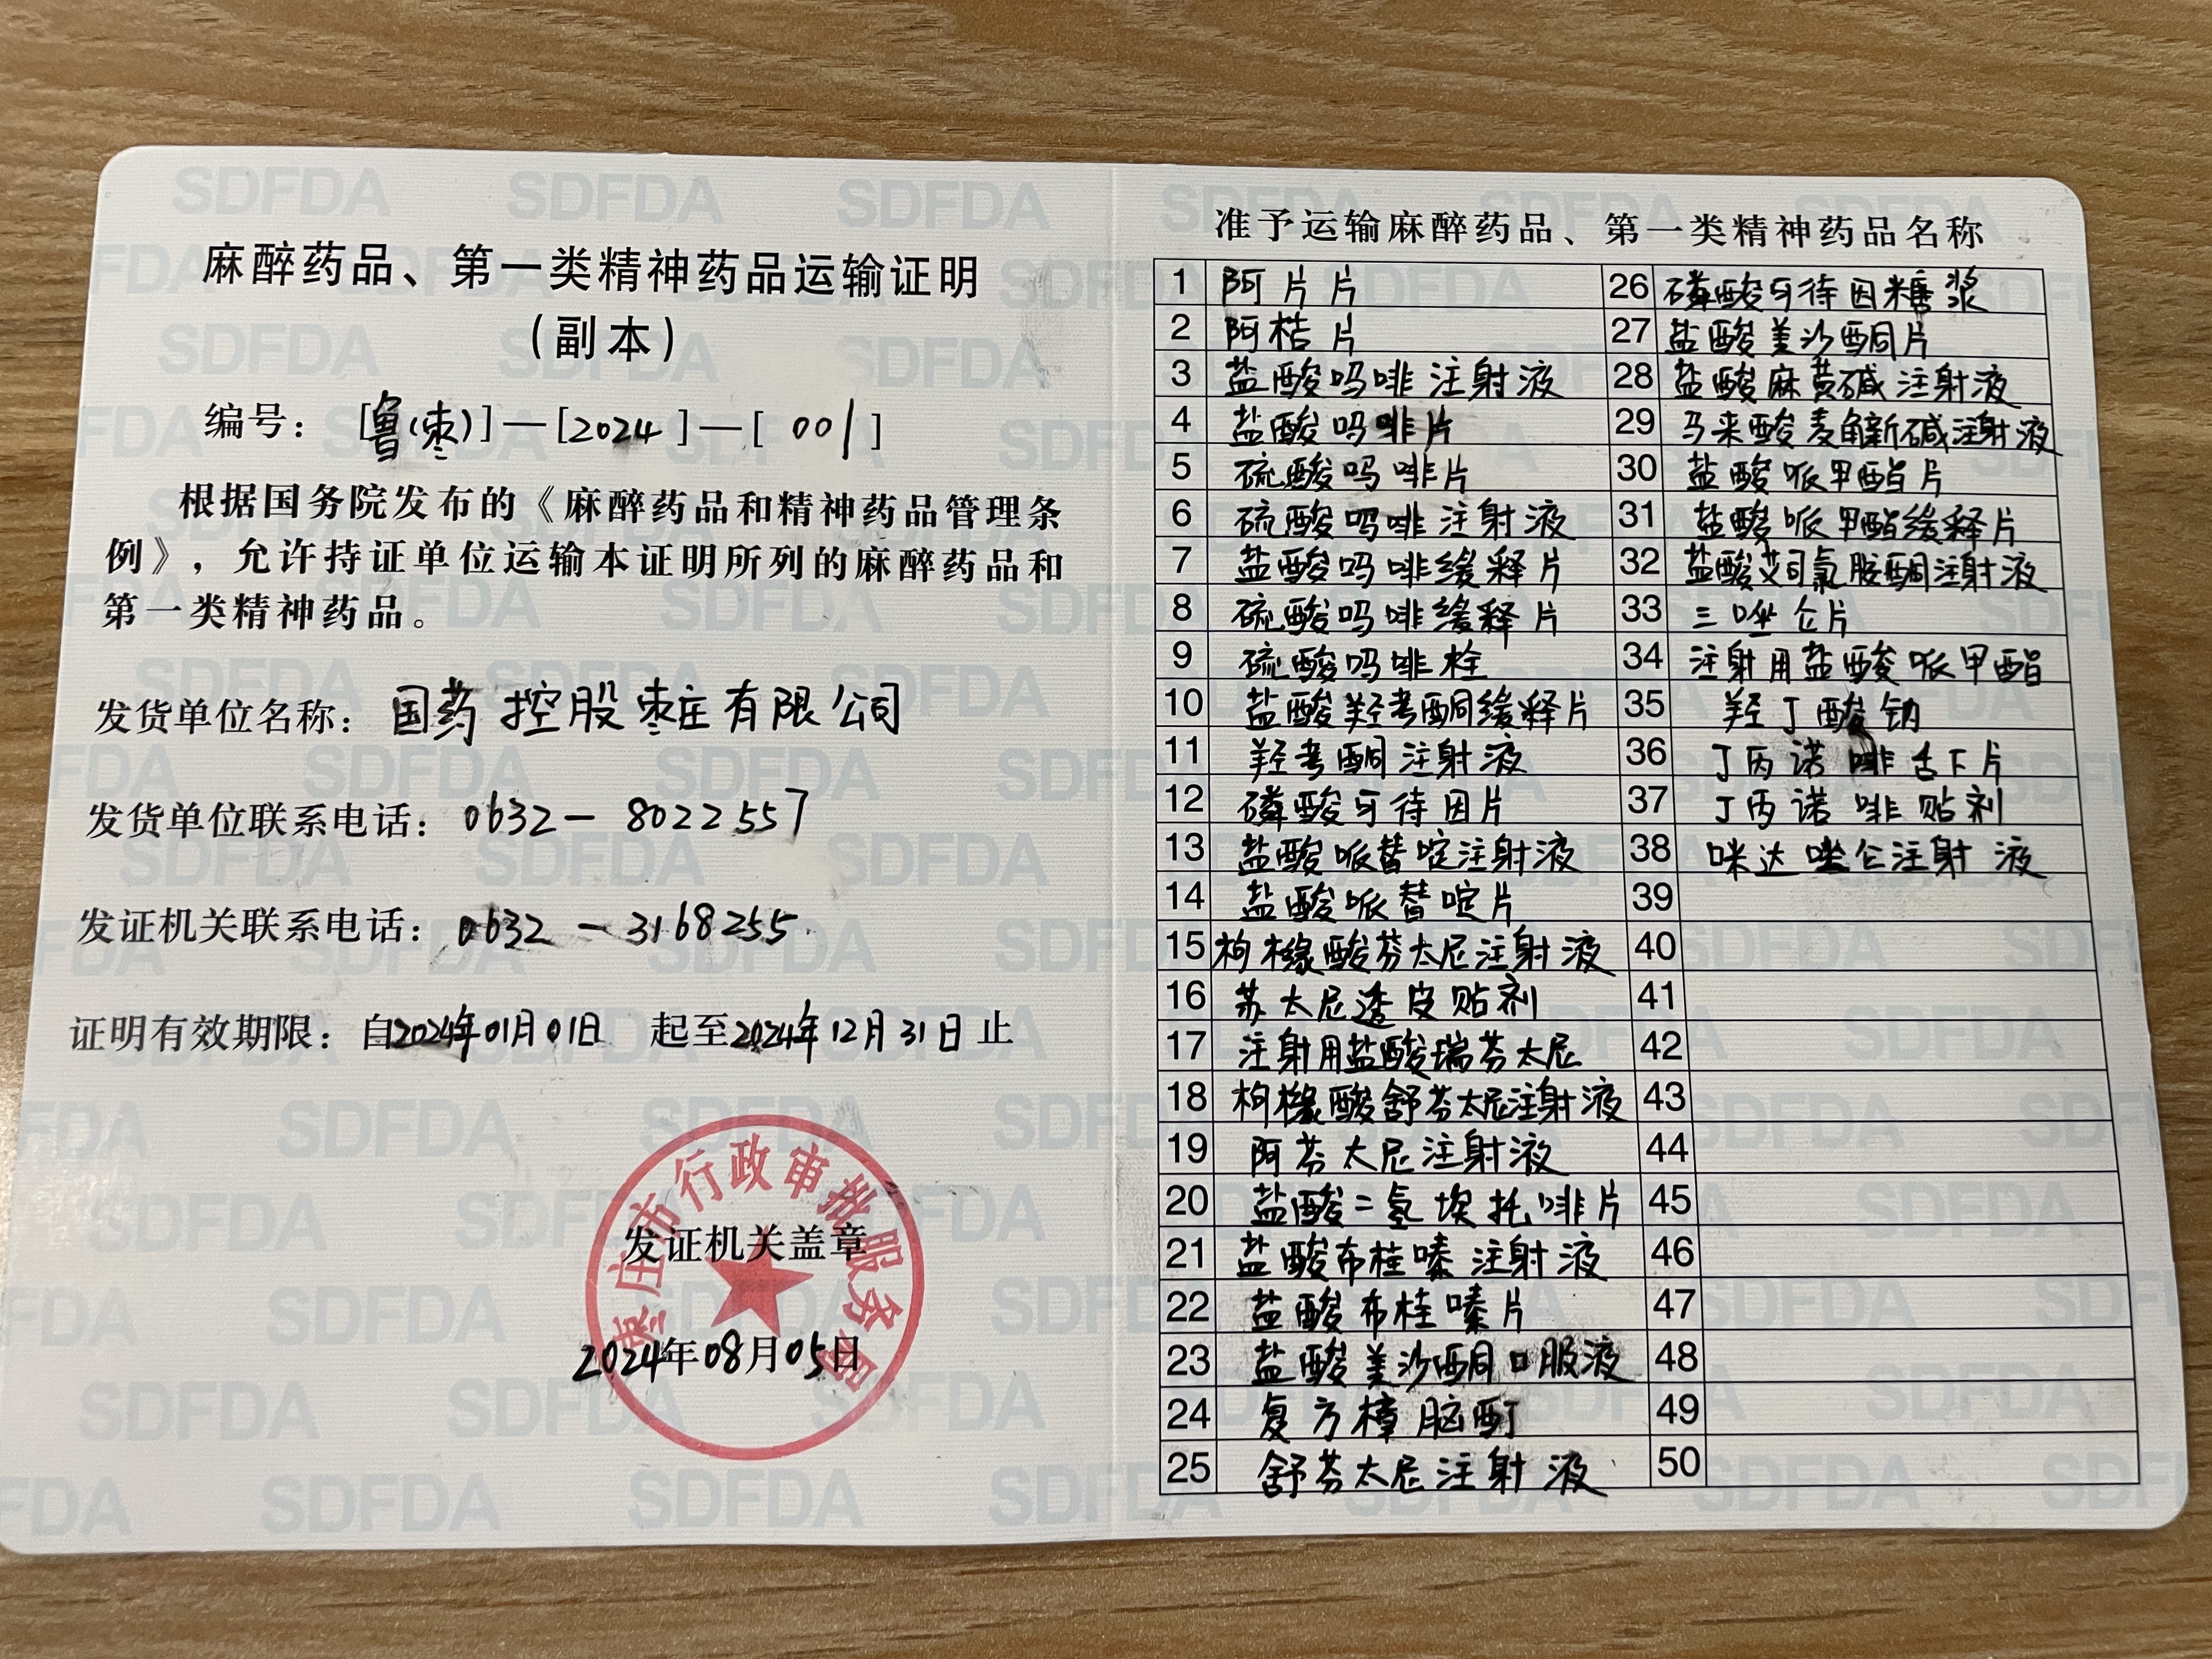 麻醉药品、第一类精神药品运输证明
(副本)
编号： [鲁(枣)]—[2024]—[001]
根据国务院发布的《麻醉药品和精神药品管理条
例》，允许持证单位运输本证明所列的麻醉药品和
第一类精神药品。
发货单位名称：国药控股枣庄有限公司
发货单位联系电话：0632－8022557
发证机关联系电话：0632－3168255
证明有效期限：自2024年01月01日 起至2024年12月31日止
枣庄市行政审批服务局
发证机关盖章
2024年08月05日
准予运输麻醉药品、第一类精神药品名称
1 阿片片
2 阿桔片
3 盐酸吗啡注射液
4 盐酸吗啡片
5 硫酸吗啡片
6 硫酸吗啡注射液
7 盐酸吗啡缓释片
8 硫酸吗啡缓释片
9 硫酸吗啡栓
10 盐酸羟考酮缓释片
11 羟考酮注射液
12 磷酸可待因片
13 盐酸哌替啶注射液
14 盐酸哌替啶片
15 枸橼酸芬太尼注射液
16 芬太尼透皮贴剂
17 注射用盐酸瑞芬太尼
18 枸橼酸舒芬太尼注射液
19 阿芬太尼注射液
20 盐酸二氢埃托啡片
21 盐酸布桂嗪注射液
22 盐酸布桂嗪片
23 盐酸美沙酮口服液
24 复方樟脑酊
25 舒芬太尼注射液
26 磷酸可待因糖浆
27 盐酸美沙酮片
28 盐酸麻黄碱注射液
29 马来酸麦角新碱注射液
30 盐酸哌甲酯片
31 盐酸哌甲酯缓释片
32 盐酸艾司氯胺酮注射液
33 三唑仑片
34 注射用盐酸哌甲酯
35 羟丁酸钠
36 丁丙诺啡舌下片
37 丁丙诺啡贴剂
38 咪达唑仑注射液
39
40
41
42
43
44
45
46
47
48
49
50
SDFDA